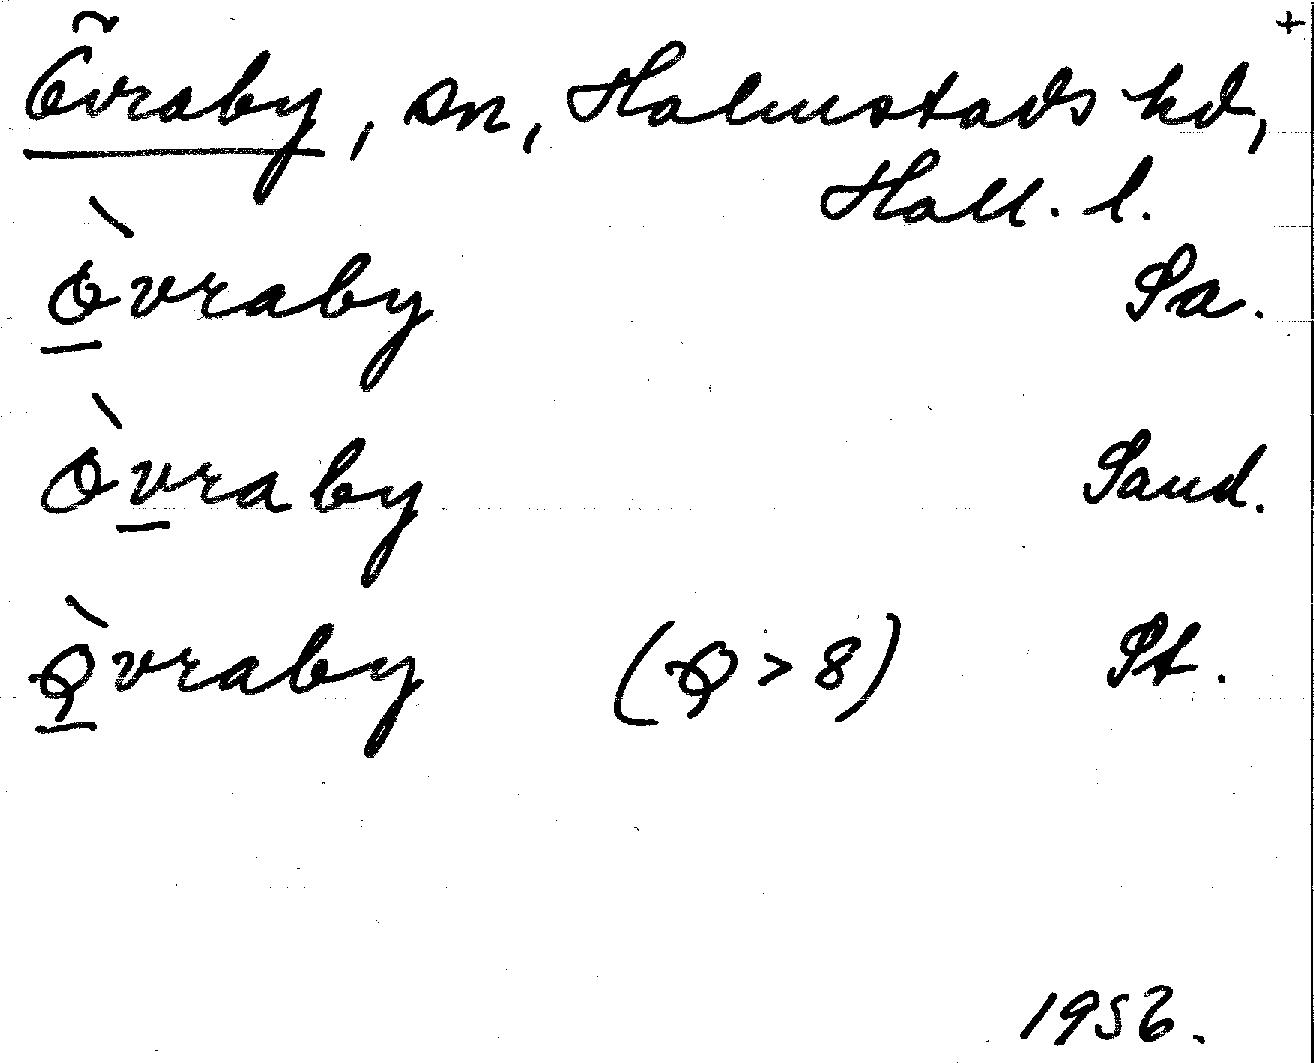 +
Övraby, sn, Halmstads hd,
Hall. l.
Ò̱vraby Sa.
Òv̱raby Sand.
Ǫ̱̀vraby (Ǫ > 8) St.
1956.